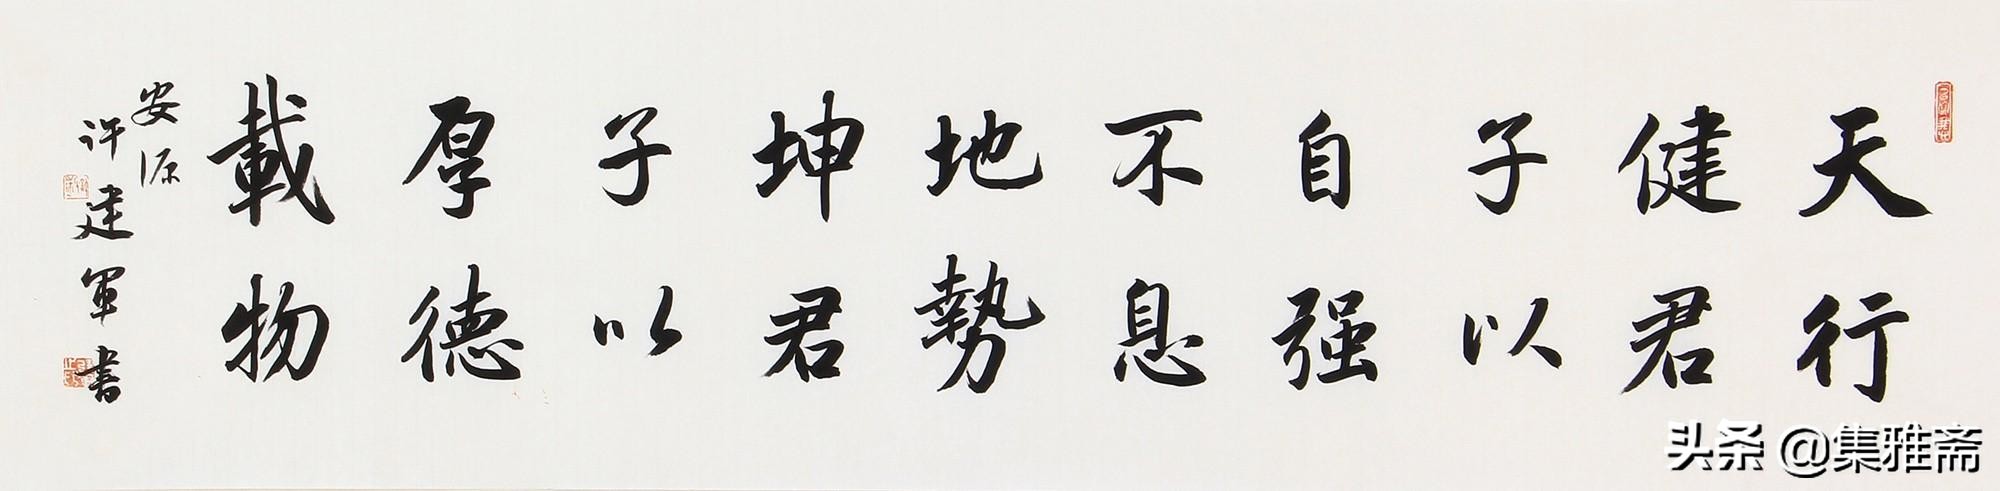 天行
健君
子以
自强
不息
地勢
坤君
子以
厚德
載物
安源
许建軍書
头条 @集雅斋